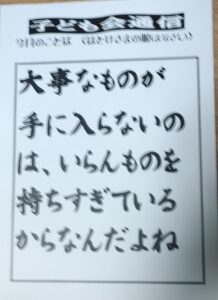 子ども会通信
今月のことば 〈ほとけさまの眼はなさい〉
大事なものが
手に入らないの
は、いらんものを
持ちすぎている
からなんだよね